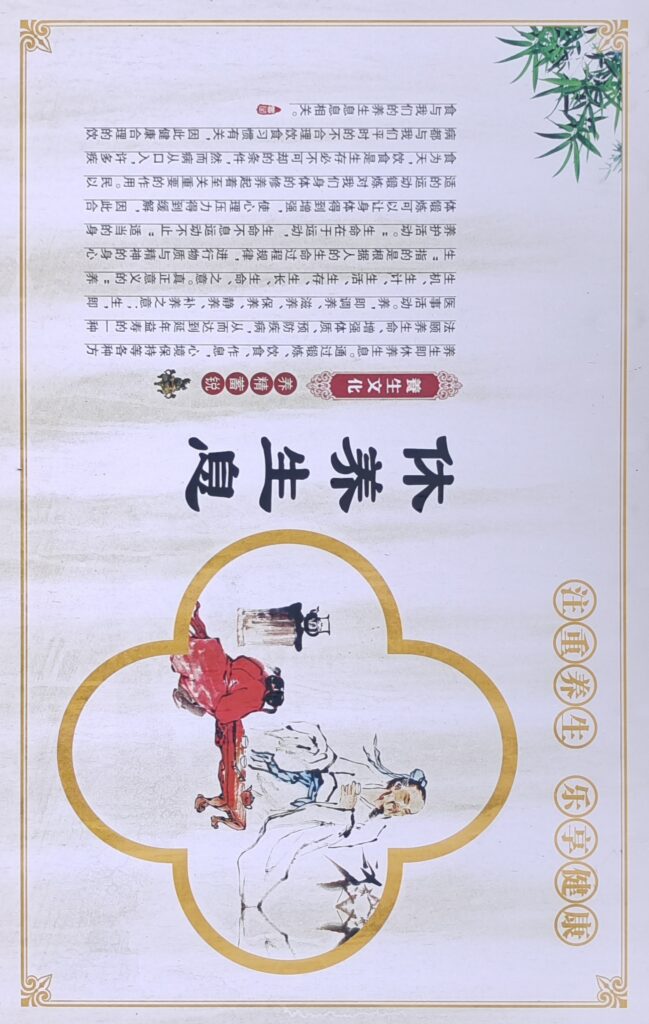 注重养生 乐享健康
休养生息
養生文化
养精蓄锐
养生即休养生息。通过锻炼、饮食、作息，心境保持等各种方
法颐养生命、增强体质、预防疾病，从而达到延年益寿的一种
医事活动。养，即调养、滋养、保养、静养、补养之意；生，即
生机、生计、生活、生存、生长、生命、之意。真正意义的“养
生”指的是根据人的生命过程规律，进行物质与精神的身心
养护活动。“生命在于运动，生命不息运动不止”适当的身
体锻炼可以让身体得到增强，使心理压力得到缓解，因此合
适的运动锻炼对我们身体的修养起着至关重要的作用。民以
食为天，饮食是生存必不可却的条件，然而病从口入，许多疾
病都与我们平时的不合理饮食习惯有关，因此健康合理的饮
食与我们的养生息息相关。